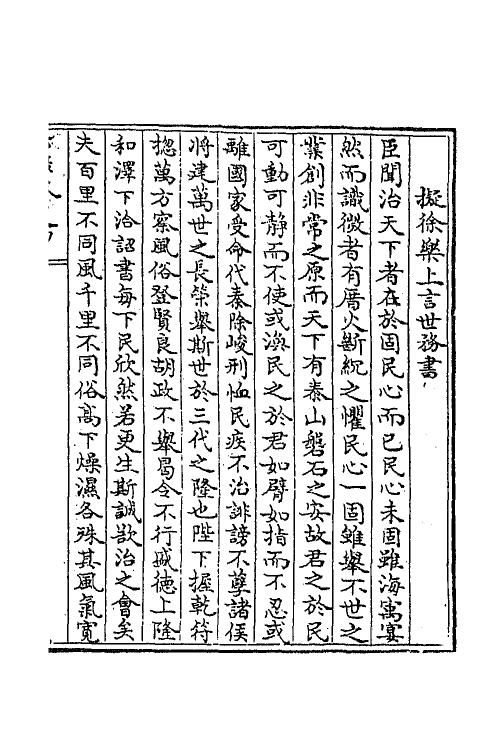 擬徐樂上言世務書
臣聞治天下者在於固民心而已民心未固雖海㝢宴
然而識微者有厝火斷綂之懼民心一固雖舉不世之
業創非常之原而天下有泰山磐石之安故君之於民
可動可静而不使或渙民之於君如臂如指而不忍或
離國家受命代秦除峻刑恤民疾不治誹謗不孽諸侯
將建萬世之長䇿舉斯世於三代之隆也陛下握乾符
揔萬方察風俗登賢良胡政不舉曷令不行威德上隆
和澤下洽詔書每下民欣然若更生斯誠欲治之會矣
夫百里不同風千里不同俗髙下燥濕各殊其風氣寛